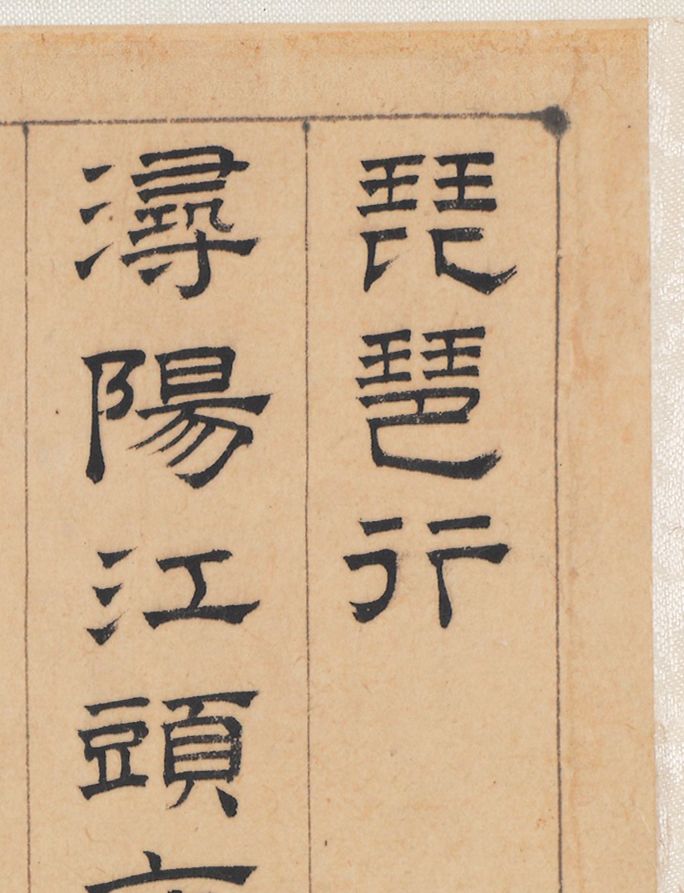 琵琶行
潯陽江頭